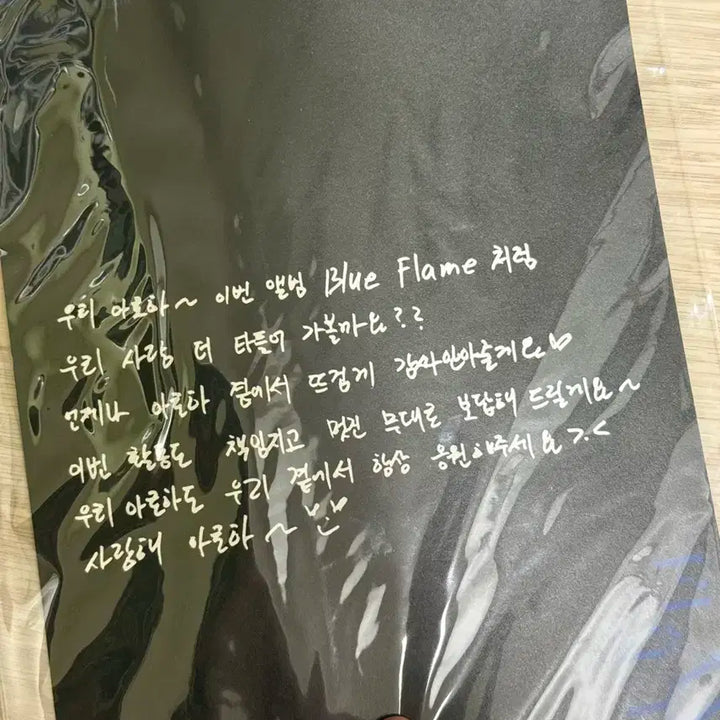 우리 아로하~ 이번 앨범 Blue Flame 처럼
우리 사랑 더 타들어 가볼까요??
언제나 아로하 곁에서 뜨겁게 감싸안아줄게요♡
이번 활동도 책임지고 멋진 무대로 보답해 드릴게요~
우리 아로하도 우리 곁에서 항상 응원해주세요 >.<
사랑해 아로하~